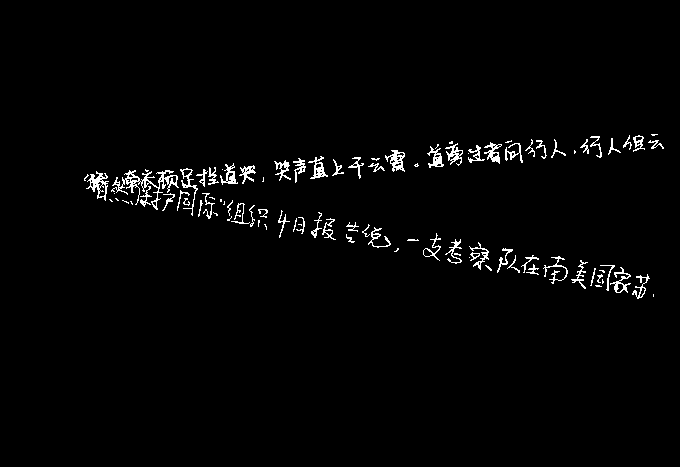 牵衣顿足拦道哭，哭声直上干云霄。道旁过者问行人，行人但云
然保护国际"组织4日报告说，一支考察队在南美国家苏